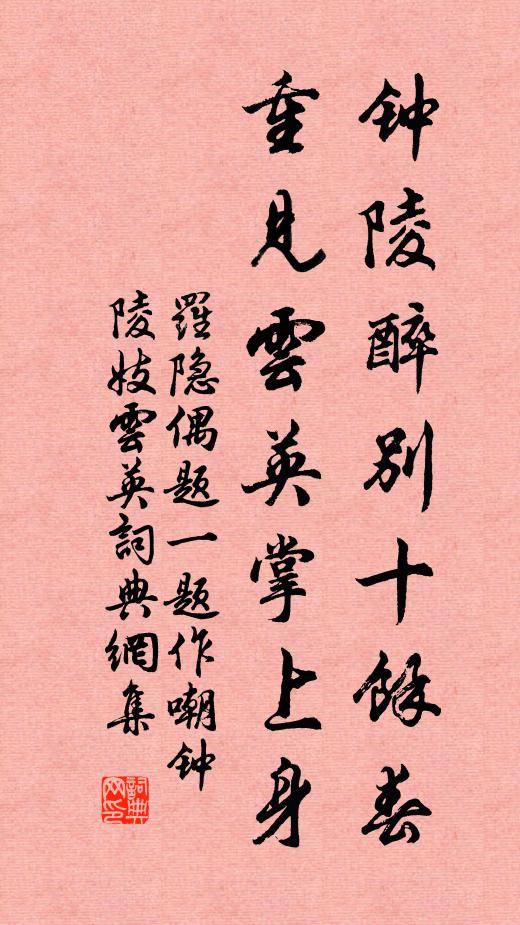 钟陵醉别十餘春
重见雲英掌上身
羅隐偶题一题作嘲钟
陵妓雲英詞典網集
詞典网印